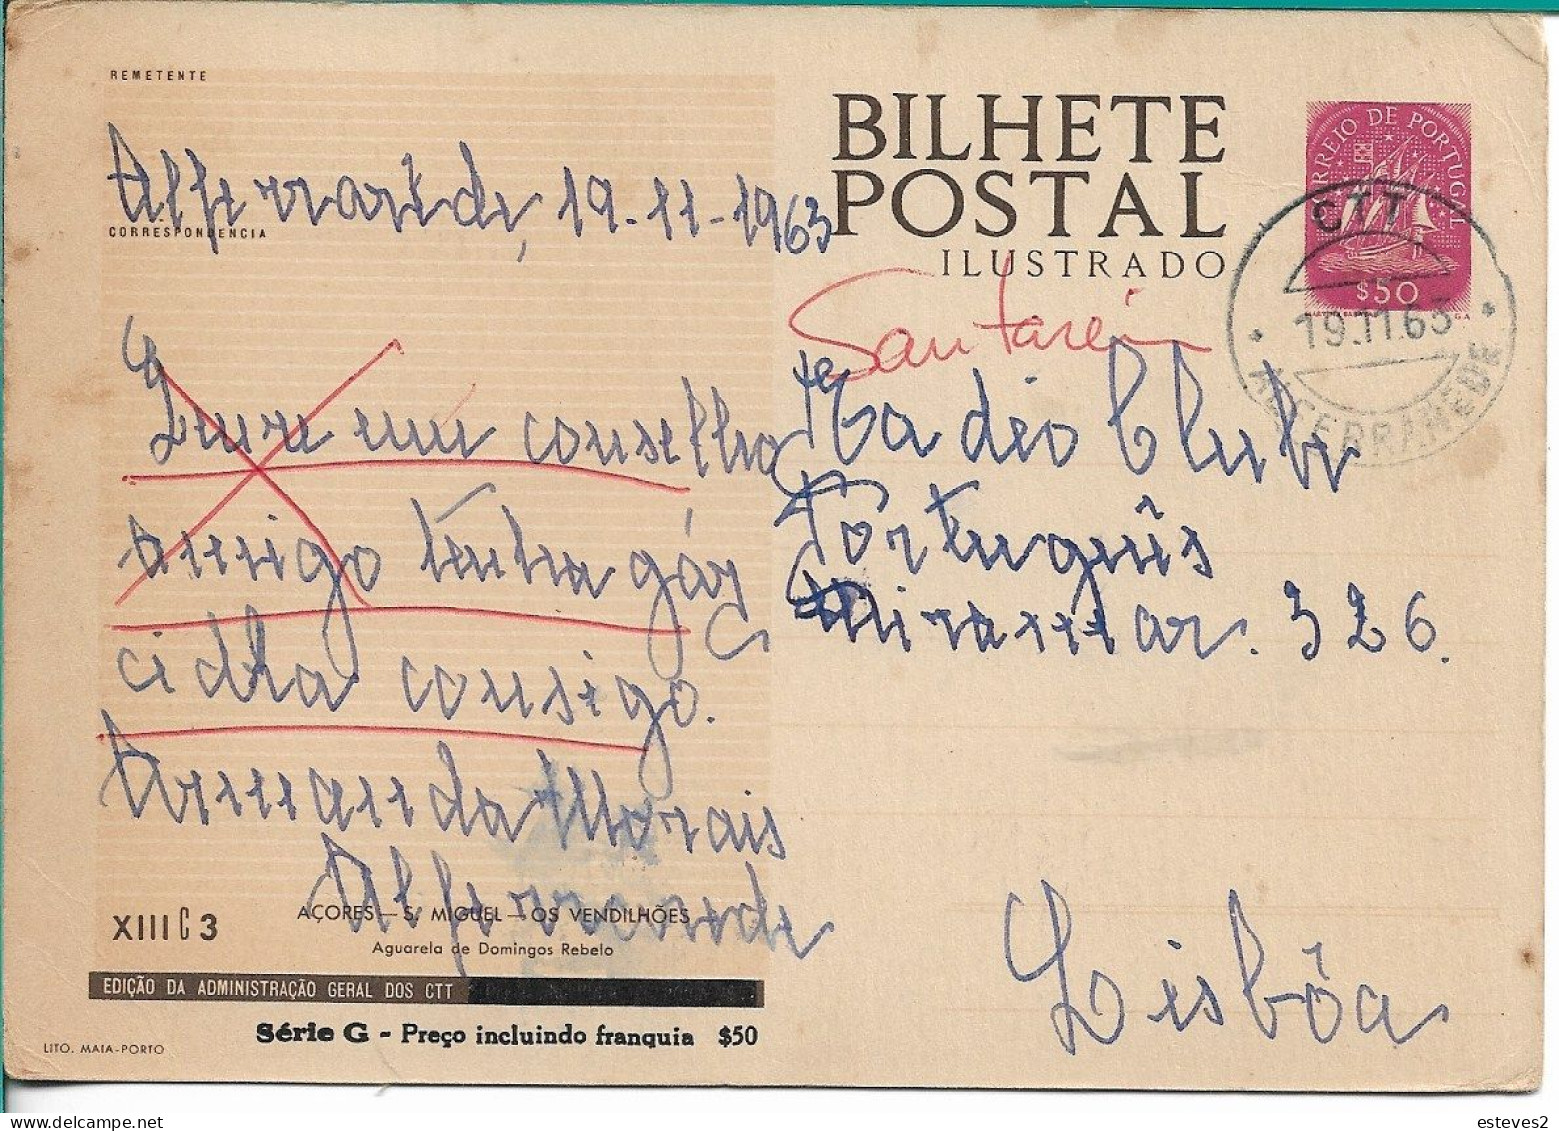 REMETENTE
Alferrarede, 19-11-1963
CORRESPONDENCIA
um conselho
amigo tenha gáz
cidla consigo.
Armanda Morais
Alferrarede
XIII C 3
AÇORES — S. MIGUEL — OS VENDILHÕES
Aguarela de Domingos Rebelo
EDIÇÃO DA ADMINISTRAÇÃO GERAL DOS CTT
Série G - Preço incluindo franquia $50
LITO. MAIA-PORTO
BILHETE
POSTAL
ILUSTRADO
CORREIO DE PORTUGAL
$50
CTT
19.11.63
ALFERRAREDE
Santarém
Radio Club
Português
Miramar. 326.
Lisbôa
esteves2